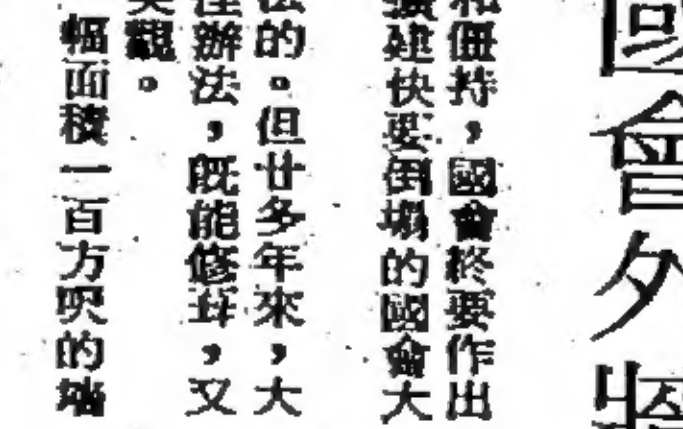 國會外牆
和僵持，國會終要作出
擴建快要倒塌的國會大
法的。但廿多年來，大
辦法，既能修葺，又
觀。
幅面積一百方呎的牆